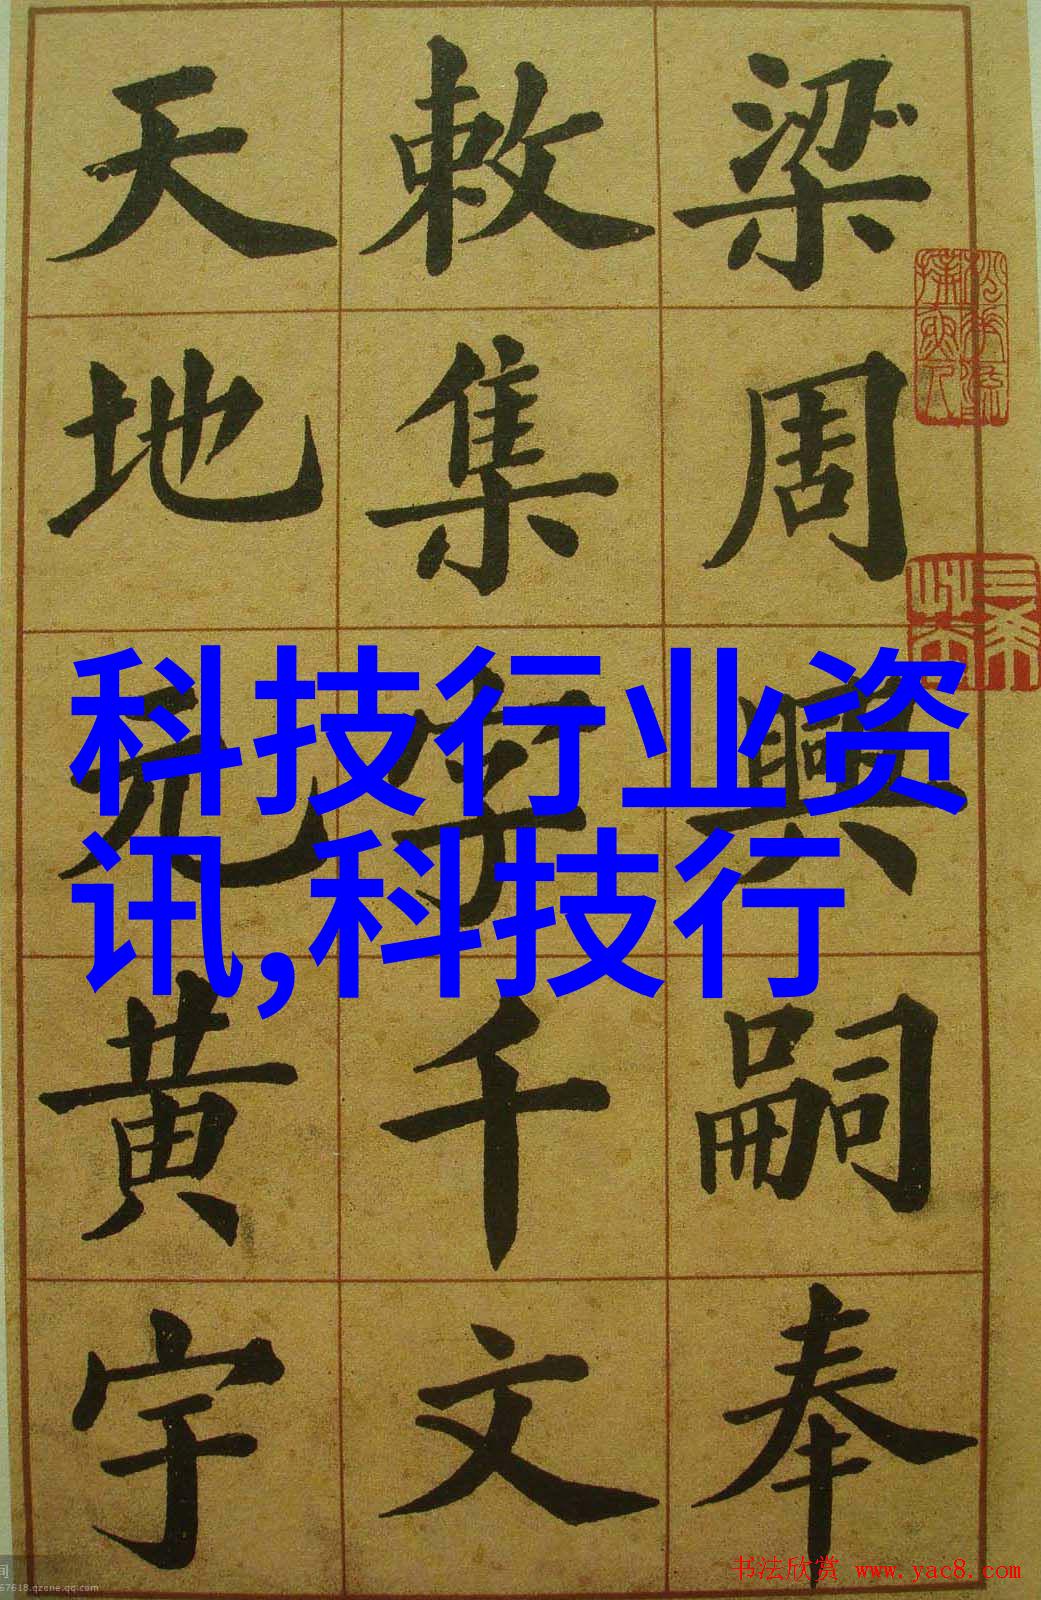 梁周興嗣奉
敕集字千文
天地元黄宇
科技行业资
讯,科技行
书法欣赏 www.yac8.com
67618.qzone.qq.com